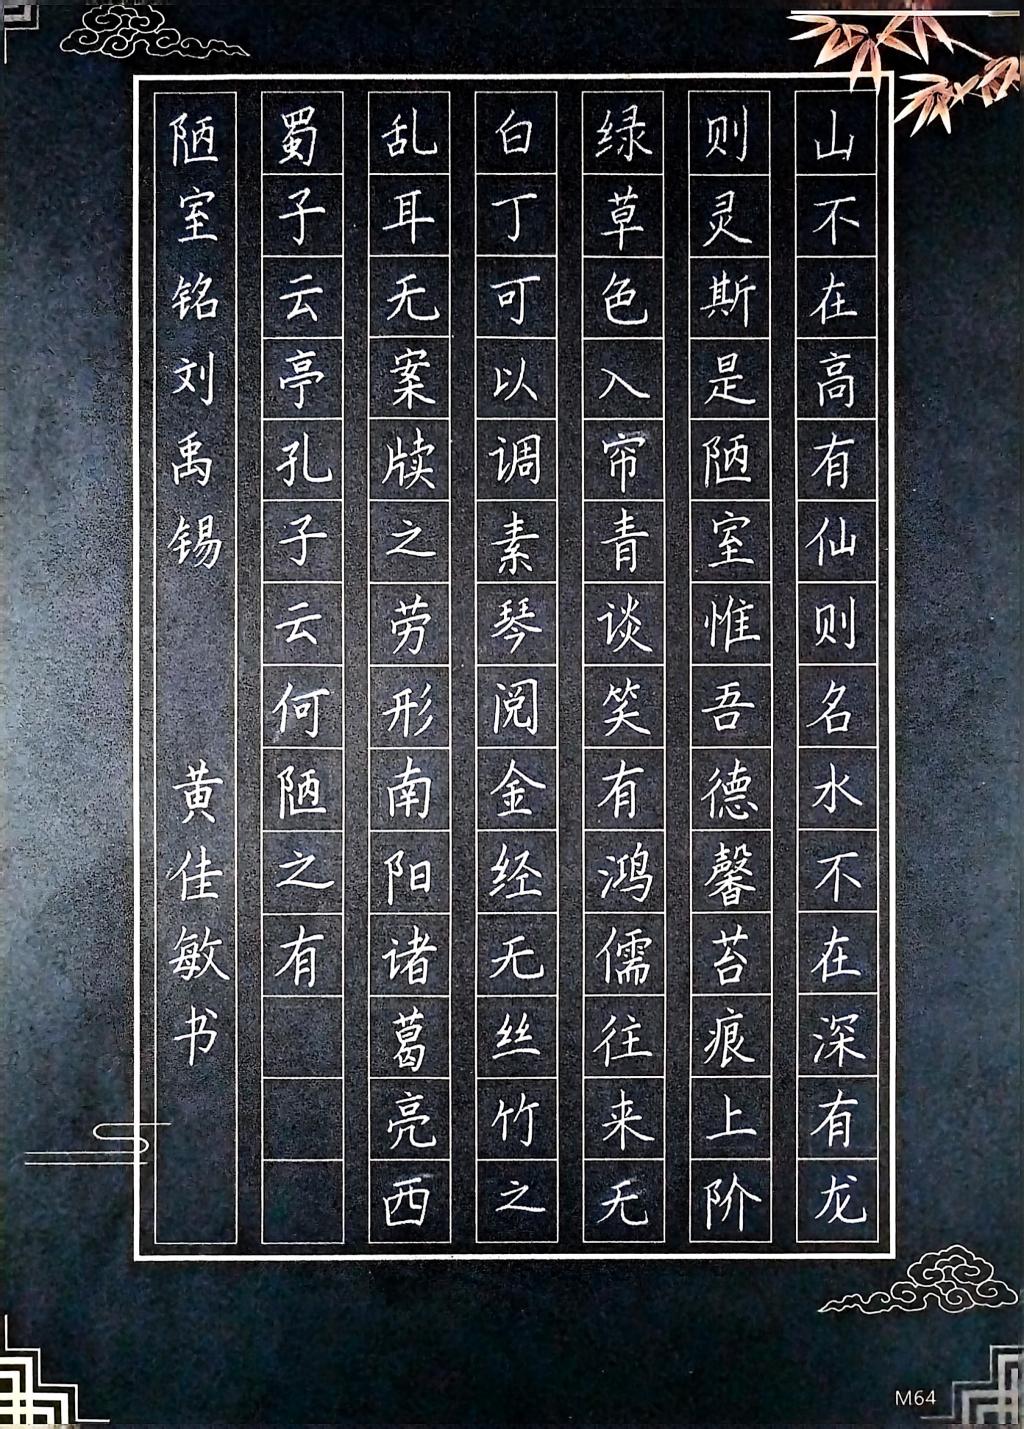 山不在高有仙则名水不在深有龙
则灵斯是陋室惟吾德馨苔痕上阶
绿草色入帘青谈笑有鸿儒往来无
白丁可以调素琴阅金经无丝竹之
乱耳无案牍之劳形南阳诸葛亮西
蜀子云亭孔子云何陋之有
陋室铭刘禹锡 黄佳敏书
M64